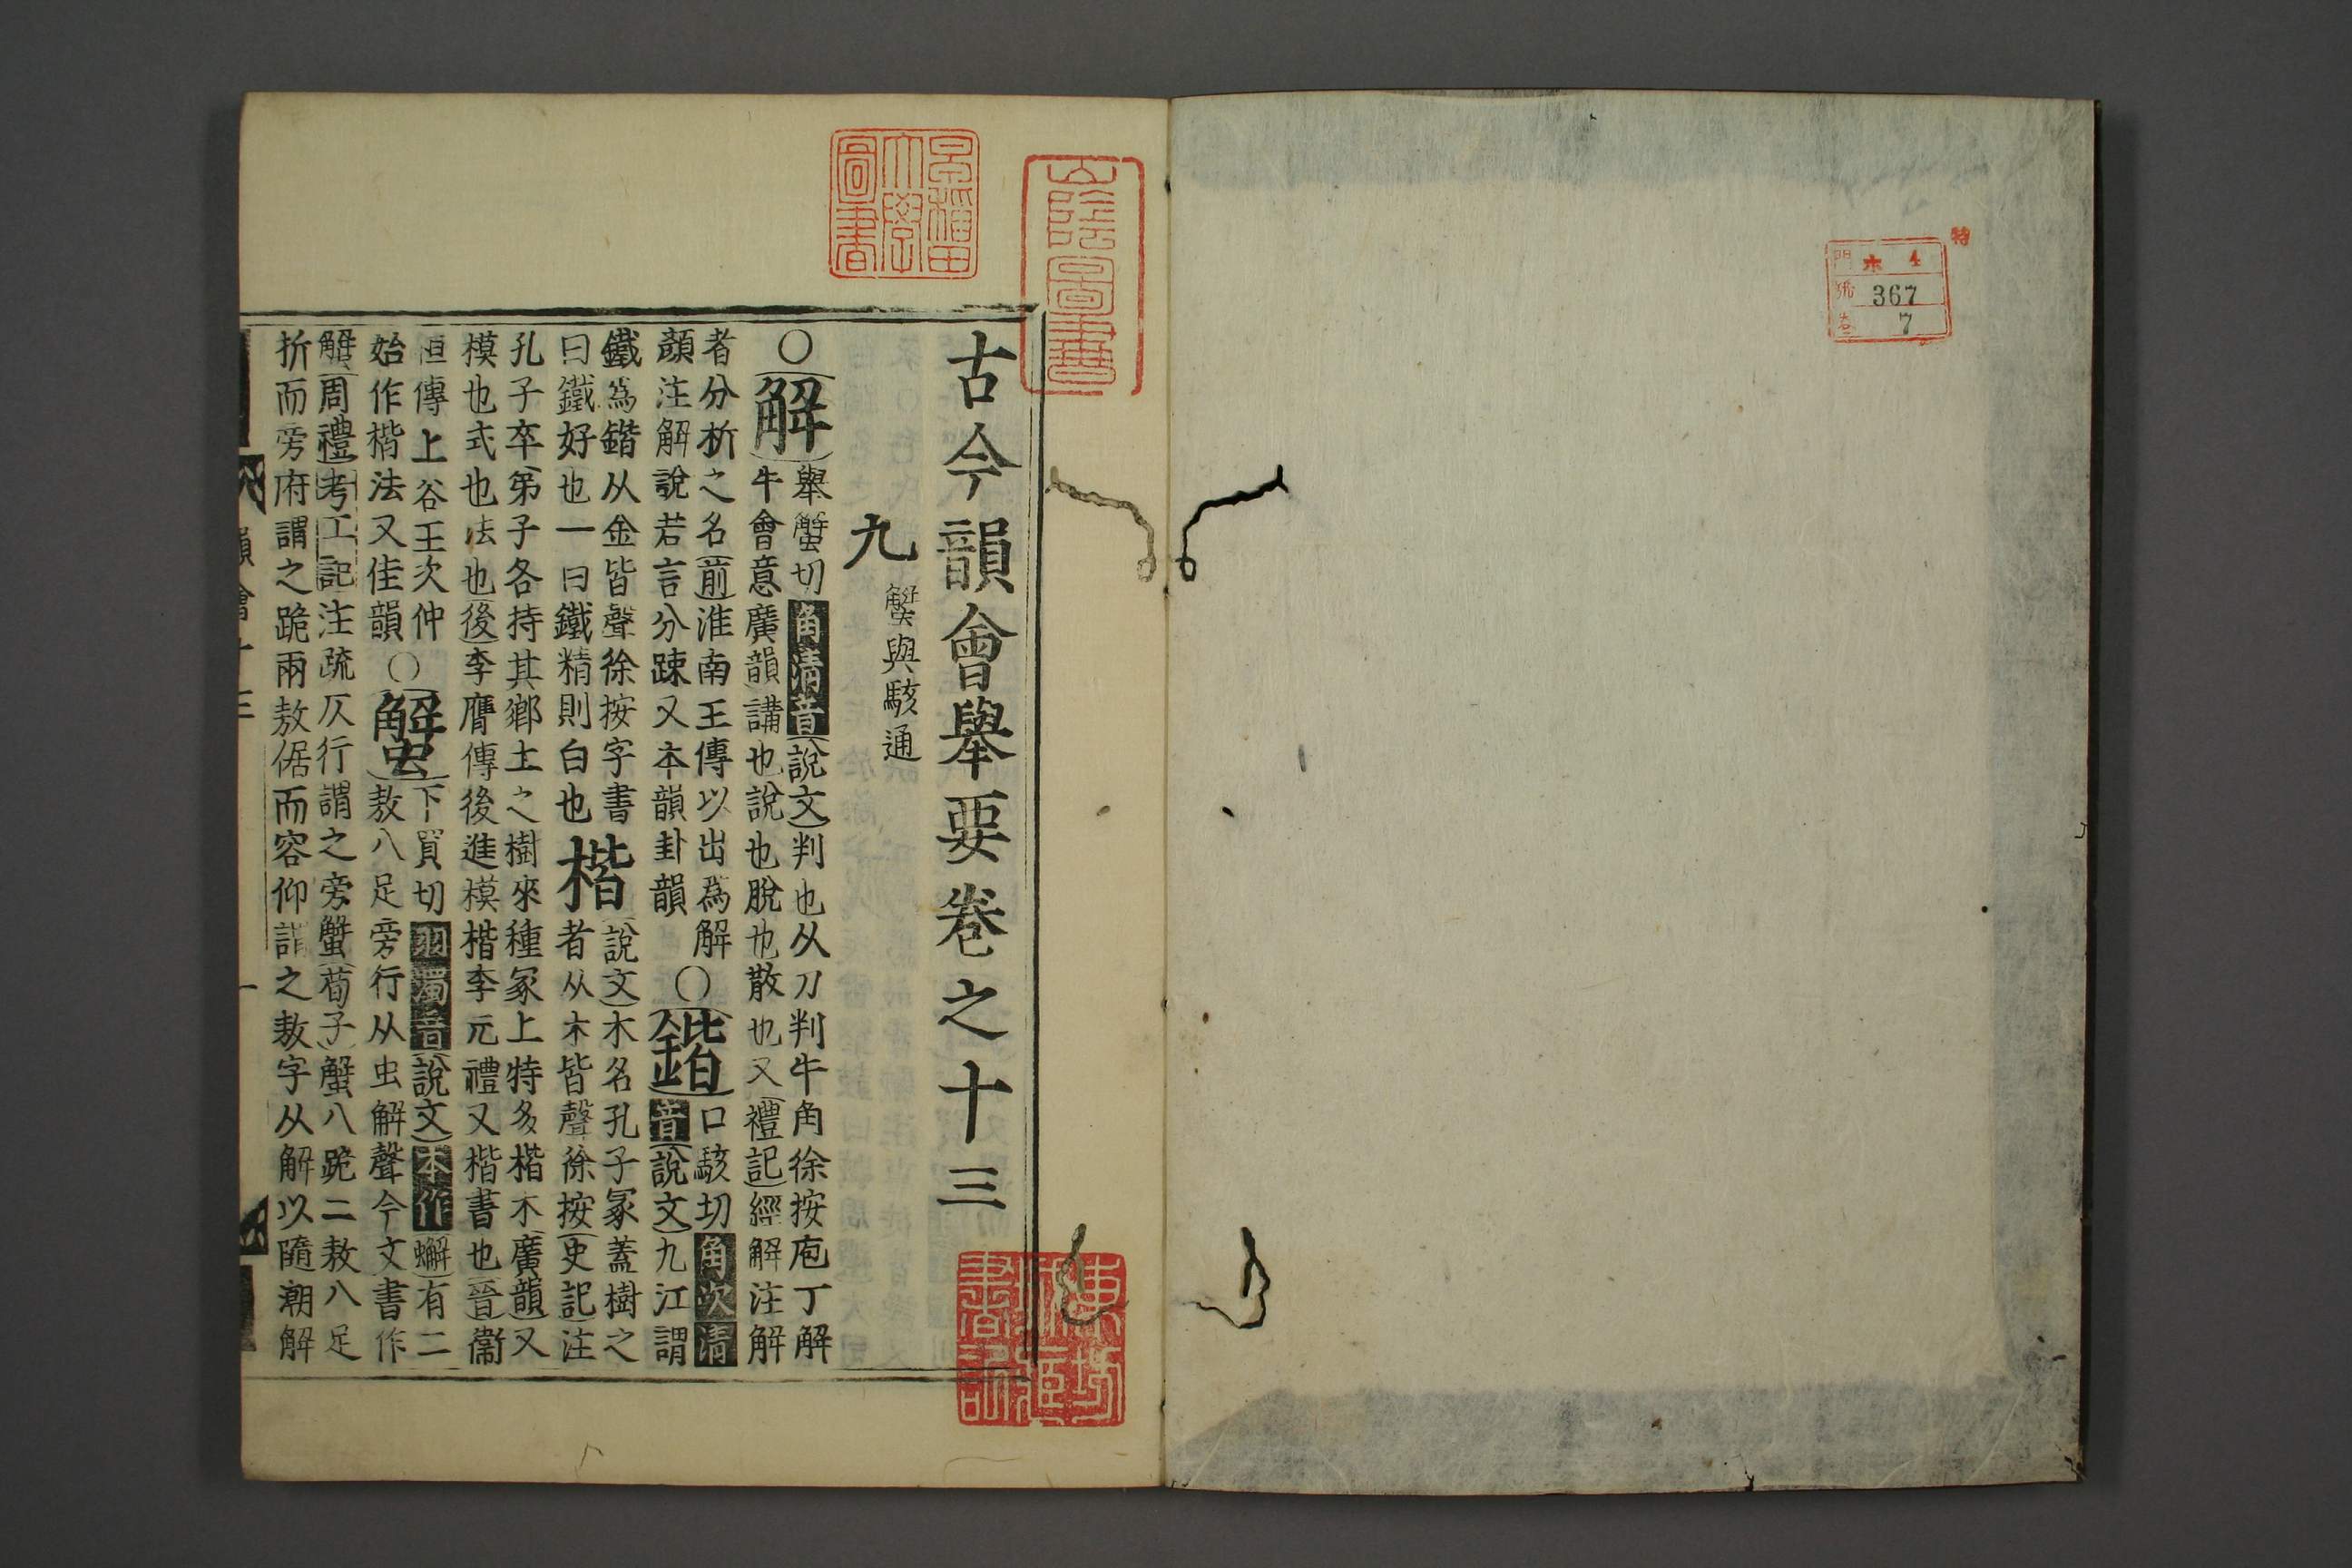 特
門 ホ 4
號 367
卷 7
早稲田大學圖書
古今韻會舉要卷之十三
九 蟹與駭通
○解 舉蟹切角清音說文判也从刀判牛角徐按庖丁解
牛會意廣韻講也說也脫也散也又禮記經解注解
者分析之名前淮南王傳以出為解○鍇 口駭切角次清
顏注解說若言分踈又本韻卦韻 音說文九江謂
鐵為鍇从金皆聲徐按字書 說文木名孔子冢蓋樹之
曰鐵好也一曰鐵精則白也楷 者从木皆聲徐按史記注
孔子卒弟子各持其鄉土之樹來種冢上特多楷木廣韻又
模也式也法也後李膺傳後進模楷李元禮又楷書也晉衞
恒傳上谷王次仲○蟹 下買切羽濁音說文本作蠏有二
始作楷法又佳韻 敖八足旁行从虫解聲今文書作
蟹周禮考工記注疏仄行謂之旁蟹荀子蟹八跪二敖八足
折而旁府謂之跪兩敖倨而容仰謂之敖字从解以隨潮解
韻會十三
一